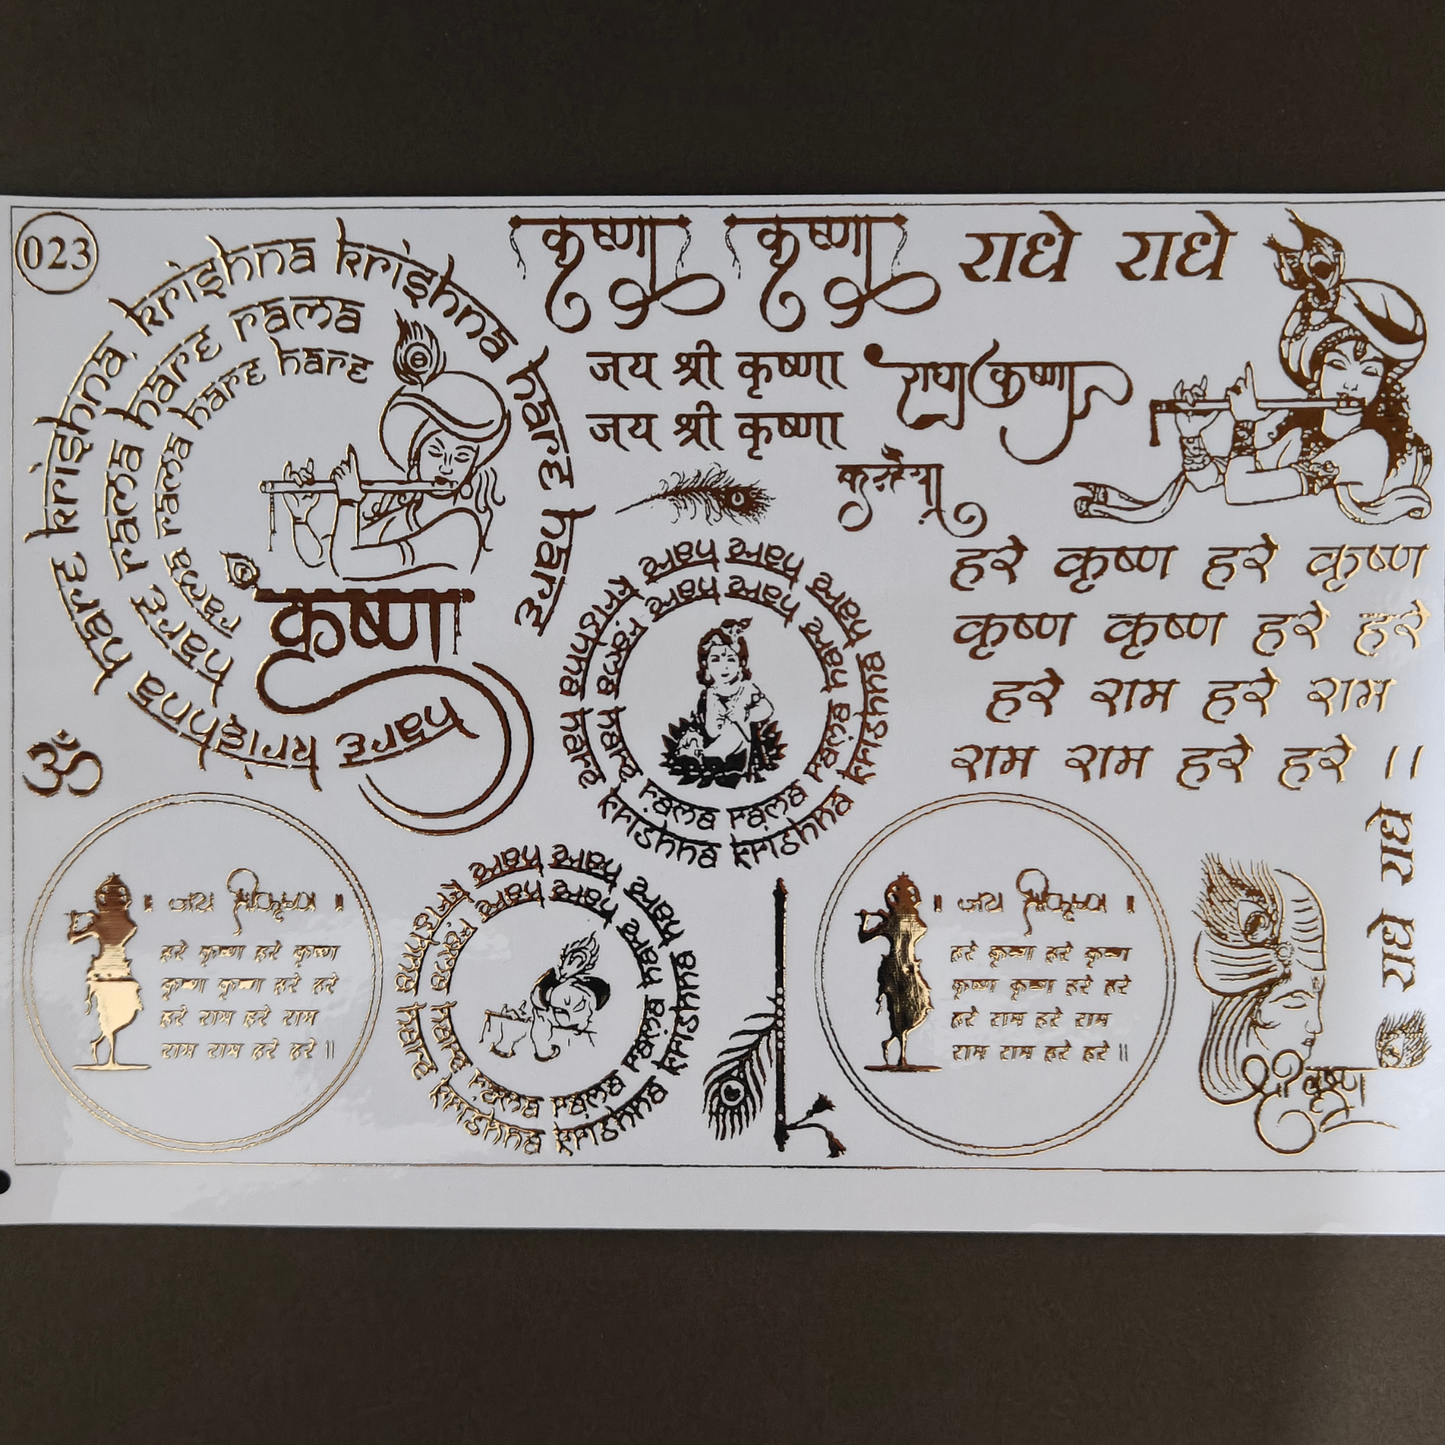 023
krishna krishna krishna hare hare
hare krishna hare krishna hare
rama hare rama
hare rama hare
rama rama hare hare
कृष्णा
कृष्णा कृष्णा
राधे राधे
जय श्री कृष्णा
जय श्री कृष्णा
राधा कृष्णा
कन्हैया
हरे कृष्ण हरे कृष्ण
कृष्ण कृष्ण हरे हरे
हरे राम हरे राम
राम राम हरे हरे ।।
ॐ
hare krishna hare krishna krishna krishna hare hare
hare rama hare rama rama rama hare hare
॥ जय श्रीकृष्णा ॥
हरे कृष्णा हरे कृष्णा
कृष्णा कृष्णा हरे हरे
हरे राम हरे राम
राम राम हरे हरे ॥
hare krishna hare krishna krishna krishna hare hare
hare rama hare rama rama rama hare hare
॥ जय श्रीकृष्णा ॥
हरे कृष्णा हरे कृष्णा
कृष्णा कृष्णा हरे हरे
हरे राम हरे राम
राम राम हरे हरे ॥
राधे राधे
श्री कृष्ण